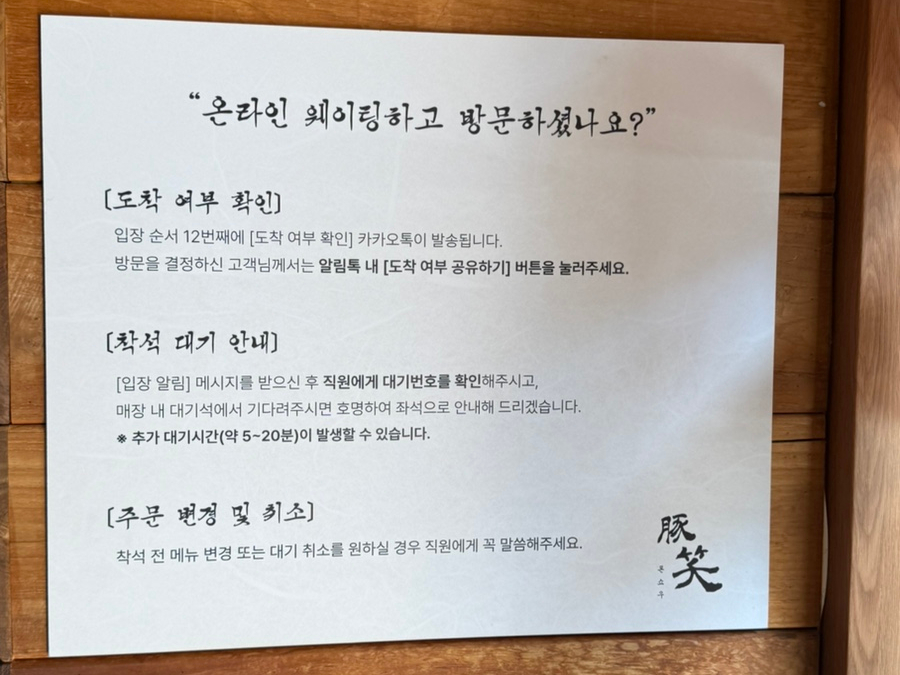 “온라인 웨이팅하고 방문하셨나요?”
[도착 여부 확인]
입장 순서 12번째에 [도착 여부 확인] 카카오톡이 발송됩니다.
방문을 결정하신 고객님께서는 알림톡 내 [도착 여부 공유하기] 버튼을 눌러주세요.
[착석 대기 안내]
[입장 알림] 메시지를 받으신 후 직원에게 대기번호를 확인해주시고,
매장 내 대기석에서 기다려주시면 호명하여 좌석으로 안내해 드리겠습니다.
※ 추가 대기시간(약 5~20분)이 발생할 수 있습니다.
[주문 변경 및 취소]
착석 전 메뉴 변경 또는 대기 취소를 원하실 경우 직원에게 꼭 말씀해주세요.
豚笑
톤쇼우